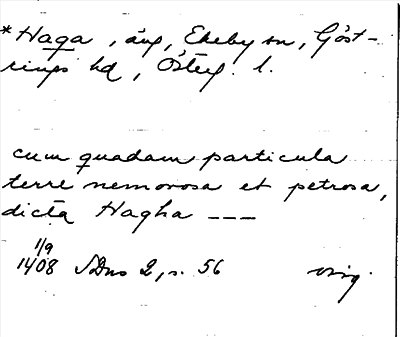 *Haga, äng, Ekeby sn, Göst-
rings hd, Österg. l.
cum quadam particula
terre nemorosa et petrosa,
dicta Hagha ---
1/9
1408 SDns 2, s. 56 orig.